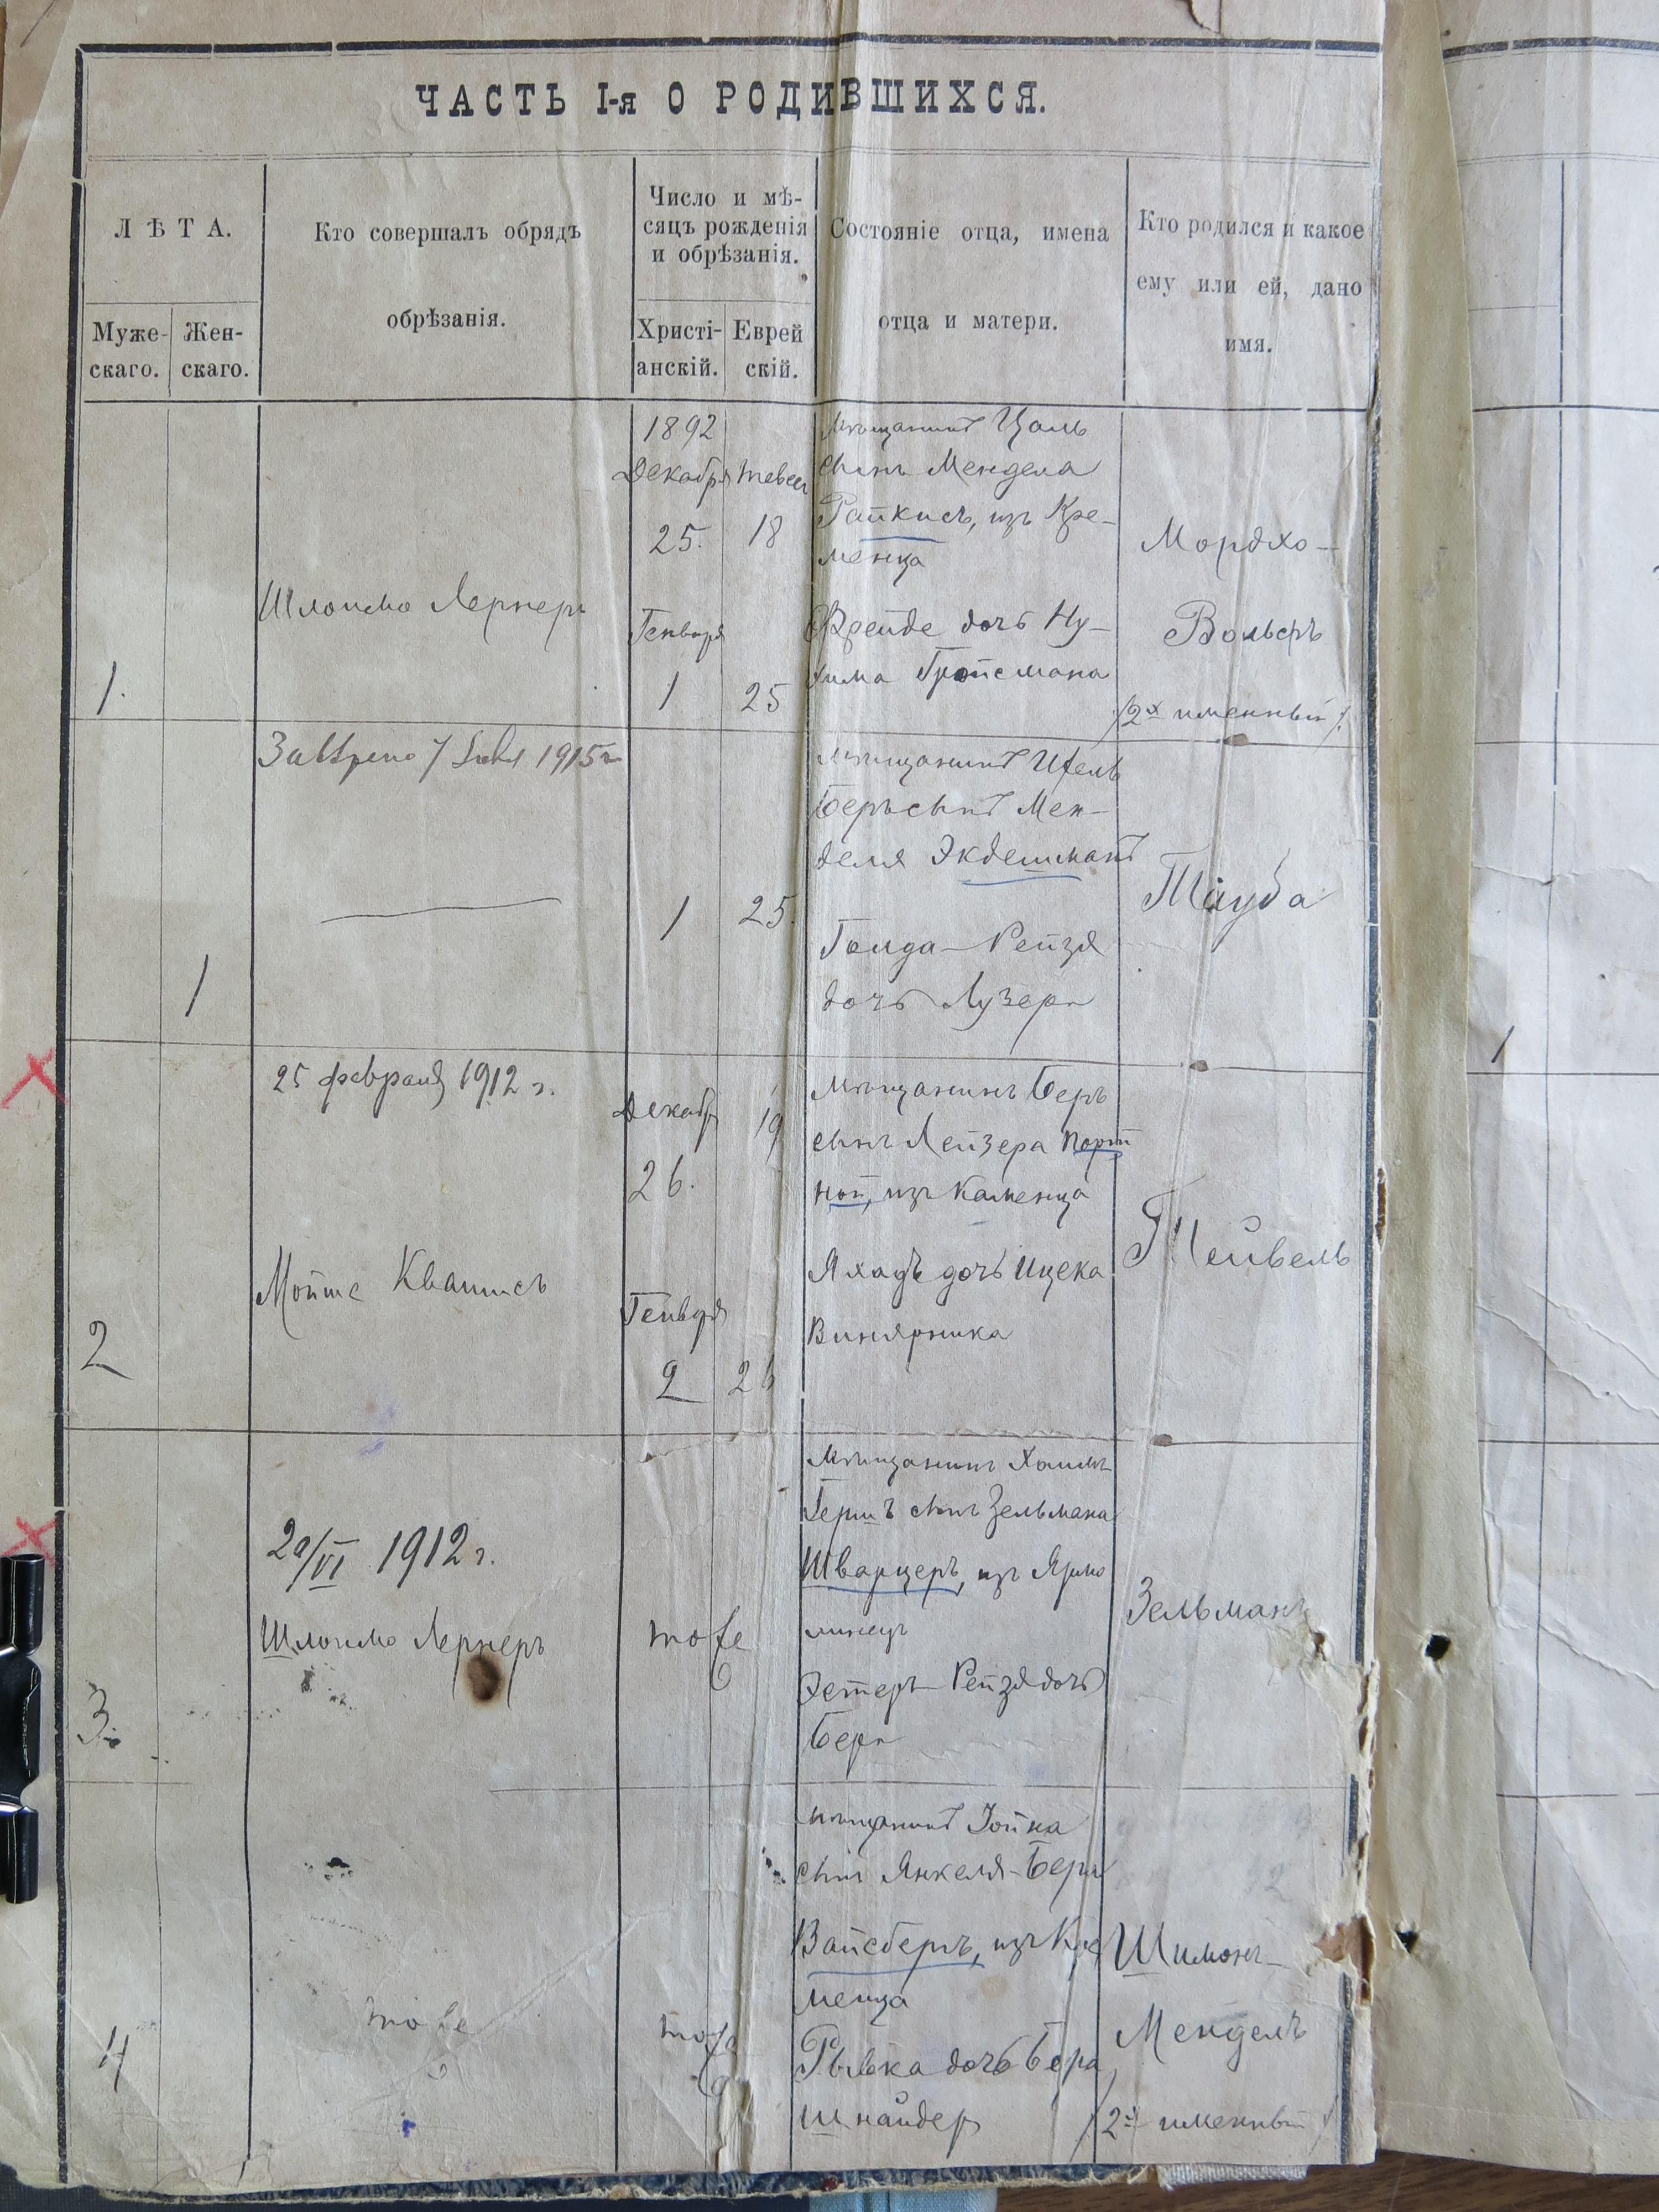 ЧАСТЬ I-я О РОДИВШИХСЯ.
ЛѢТА.
Муже-
скаго.
Жен-
скаго.
Кто совершалъ обрядъ
обрѣзанія.
Число и мѣ-
сяцъ рожденія
и обрѣзанія.
Христі-
анскій.
Еврей
скій.
Состояніе отца, имена
отца и матери.
Кто родился и какое
ему или ей, дано
имя.
1.
Шлоимо Лернеръ
1892
Декабря
25.
Генваря
1
тевеса
18
25
мѣщанинъ Цаль
сынъ Мендела
Райкисъ, изъ Кре-
менца
Фрейде дочь Ну-
хима Гройсмана
Мордхо-
Вольфъ
/2х именный/.
1
1915г
1
25.
мѣщанинъ
Беръ сынъ Мен-
деля Экдешманъ
Голда-Рейзя
дочь Лузера
Тауба
2
25 февраля 1912 г.
Мойше Квашисъ
Декабр
26.
Генваря
2
19
26
мѣщанинъ Беръ
сынъ Лейзера Порт
ной, изъ Каменца
дочь Ицека
Винярника
Тейвель
3.
1912 г.
Шлоимо Лернеръ
тоже
мѣщанинъ Хаимъ
Гершъ сынъ Зельмана
Шварцеръ, изъ Ярмо
линецъ
Эстеръ-Рейзя дочь
Бера
Зельманъ
4
тоже
тоже
мѣщанинъ Іойна
сынъ Янкеля-Бера
Вайсбергъ, изъ Кре
менца
Рывка дочь Бера
Шнайдер
Шимонъ-
Мендель
/2х именный/
1